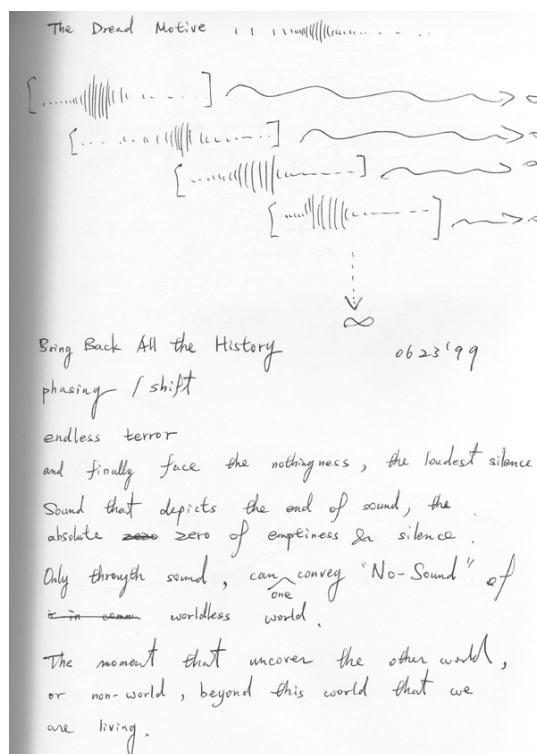 The Dread Motive
∞
Bring Back All the History 0623'99
phasing / shift
endless terror
and finally face the nothingness, the loudest silence
Sound that depicts the end of sound, the
absolute zero zero of emptiness & silence.
Only through sound, can one convey "No-Sound" of
it in comm worldless world.
The moment that uncover the other world,
or non-world, beyond this world that we
are living.